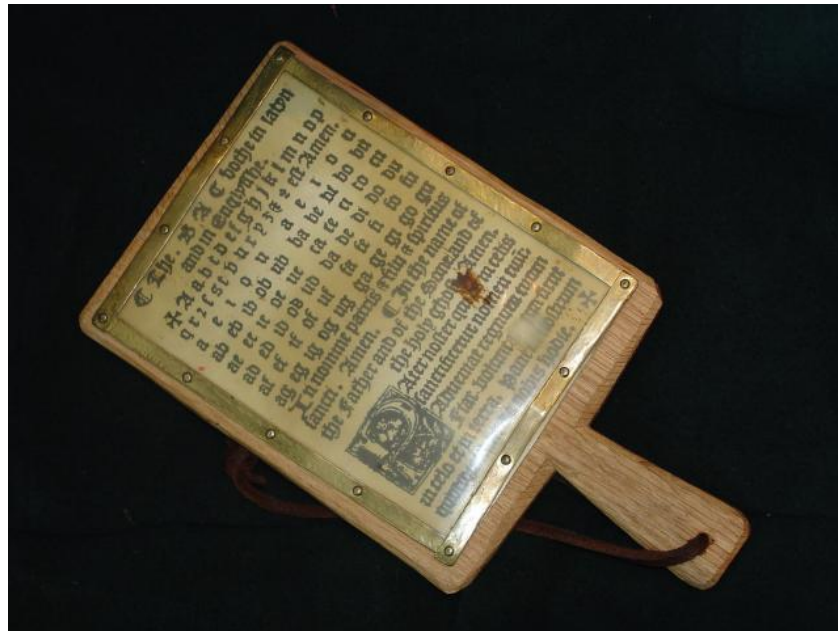 The BAC bothe in latyn
and in Englyshe.
✠ A a b c d e f g h j k l m n o p
q r z s t v u x y z & est Amen.
a e i o u a e i o u
ab eb ib ob ub ba be bi bo bu
ac ec ic oc uc ca ce ci co cu
ad ed id od ud da de di do du
af ef if of uf fa fe fi fo fu
ag eg ig og ug ga ge gi go gu
In nomine patris & filii & spiritus
sancti. Amen. In the name of
the Father and of the Sonne and of
the holy Amen.
Pater noster celis
sanctificetur nomen tuum
Adveniat regnum tuum
Fiat voluntas tua sicut
in celo et in terra. Panem nostrum
hodie. ✠